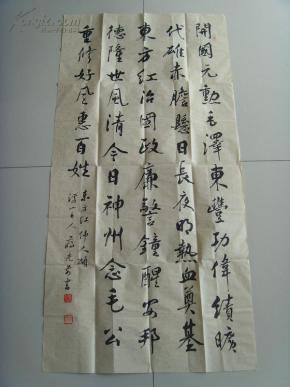 開國元勳毛澤東豐功偉績曠
代雄赤膽懸日長夜明熱血奠基
東方紅治國政廉警鐘醒安邦
德隆世風清今日神州念毛公
重修好風惠百姓
東方紅偉人頌